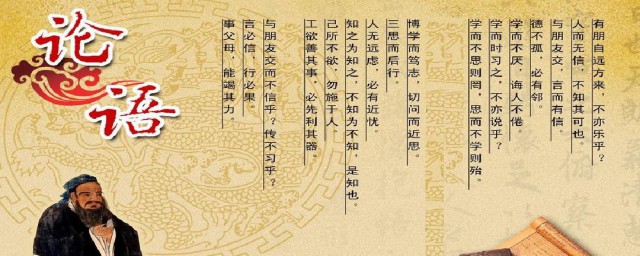 论语
有朋自远方来，不亦乐乎？
人而无信，不知其可也。
与朋友交，言而有信。
德不孤，必有邻。
学而不厌，诲人不倦。
学而时习之，不亦说乎？
学而不思则罔，思而不学则殆。
博学而笃志，切问而近思。
三思而后行。
人无远虑，必有近忧。
知之为知之，不知为不知，是知也。
己所不欲，勿施于人。
工欲善其事，必先利其器。
与朋友交而不信乎？传不习乎？
言必信，行必果。
事父母，能竭其力。